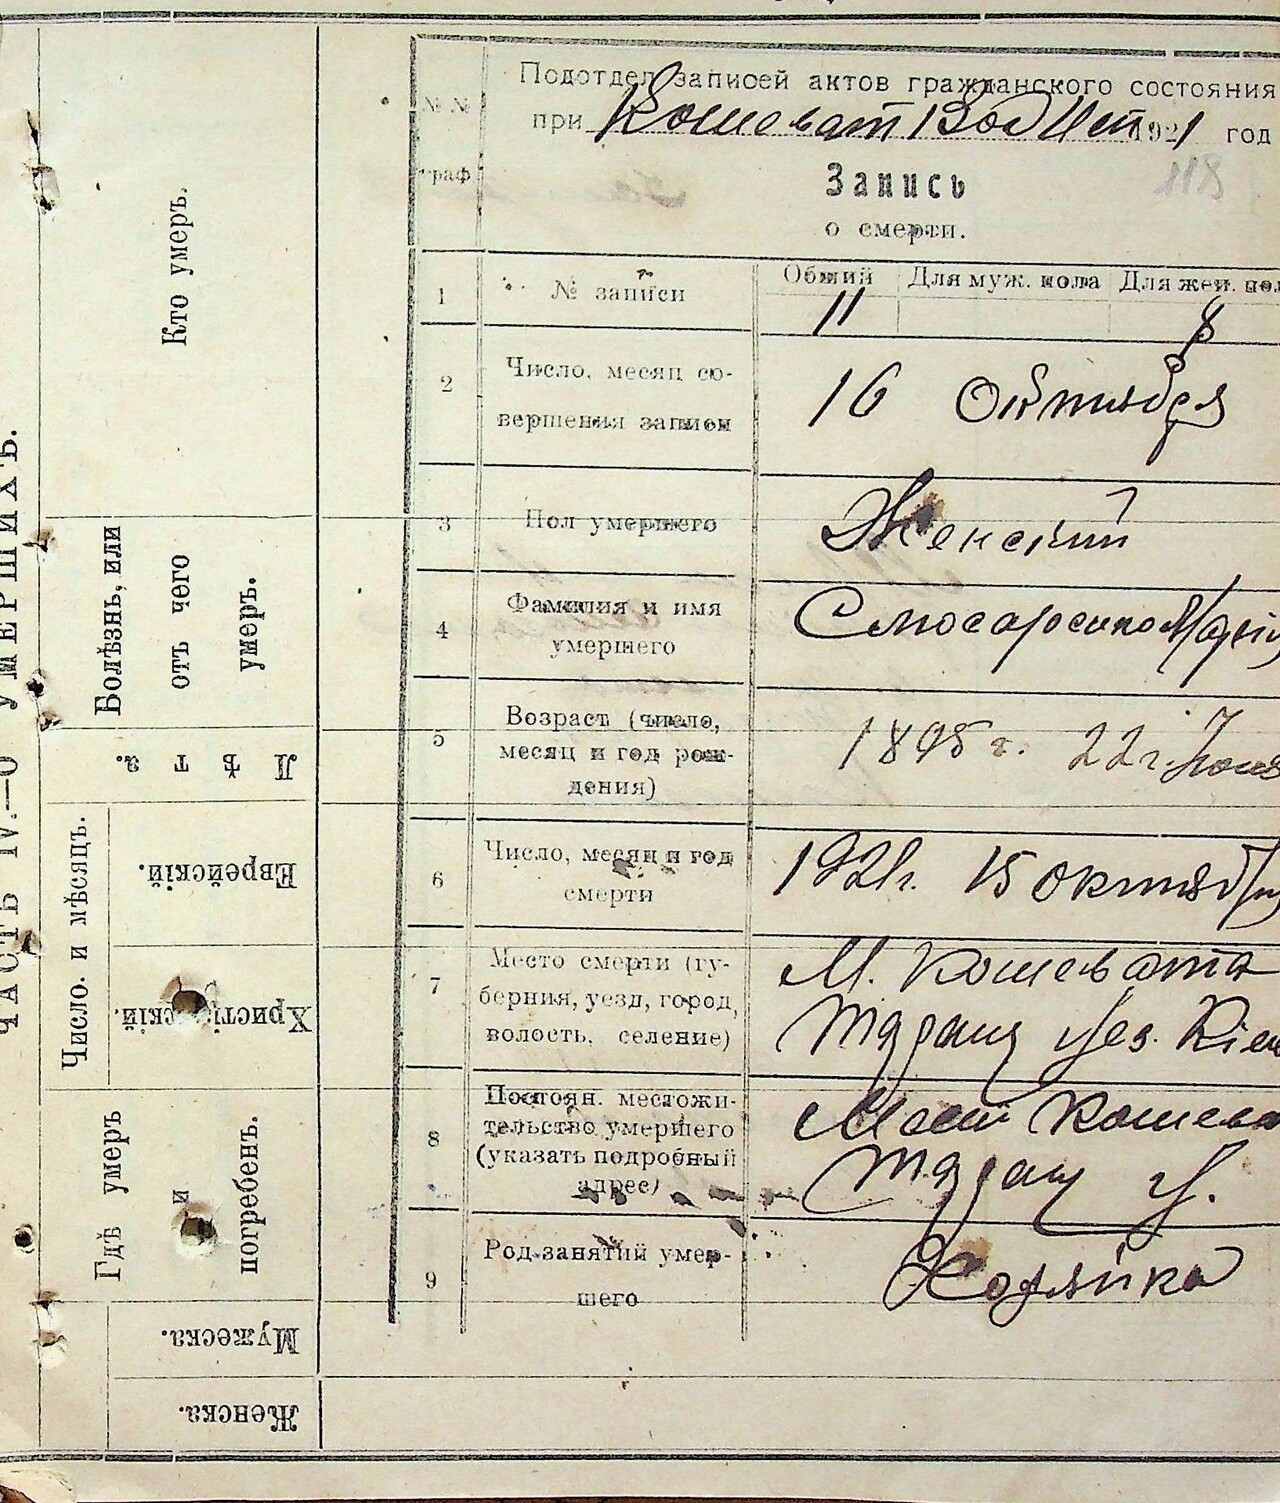 ЧАСТЬ IV.—О УМЕРШИХЪ.
Кто умеръ.
Болѣзнь, или
отъ чего
умеръ.
Лѣта.
Число. и мѣсяцъ.
Еврейскій.
Христіанскій.
Гдѣ умеръ
и
погребенъ.
Мужеска.
Женска.
Подотдел записей актов гражданского состояния
при Кошеват 1921 год
118
№№
граф
Запись
о смерти.
1 № записи Общий Для муж. пола Для жен. пол
11 8
2 Число, месяц со-
вершения записи
16 Октября
3 Пол умершего Женский
4 Фамилия и имя
умершего
Слюсаренко
5 Возраст (число,
месяц и год рож-
дения)
1898 г. 22 г.
6 Число, месяц и год
смерти
1921 г. 15 октяб
7 Место смерти (гу-
берния, уезд, город,
волость, селение)
М. Кошевата
уез. Кіев
8 Постоян. местожи-
тельство умершего
(указать подробный
адрес)
Мест Кошева
у.
9 Род занятий умер-
шего
Хозяйка